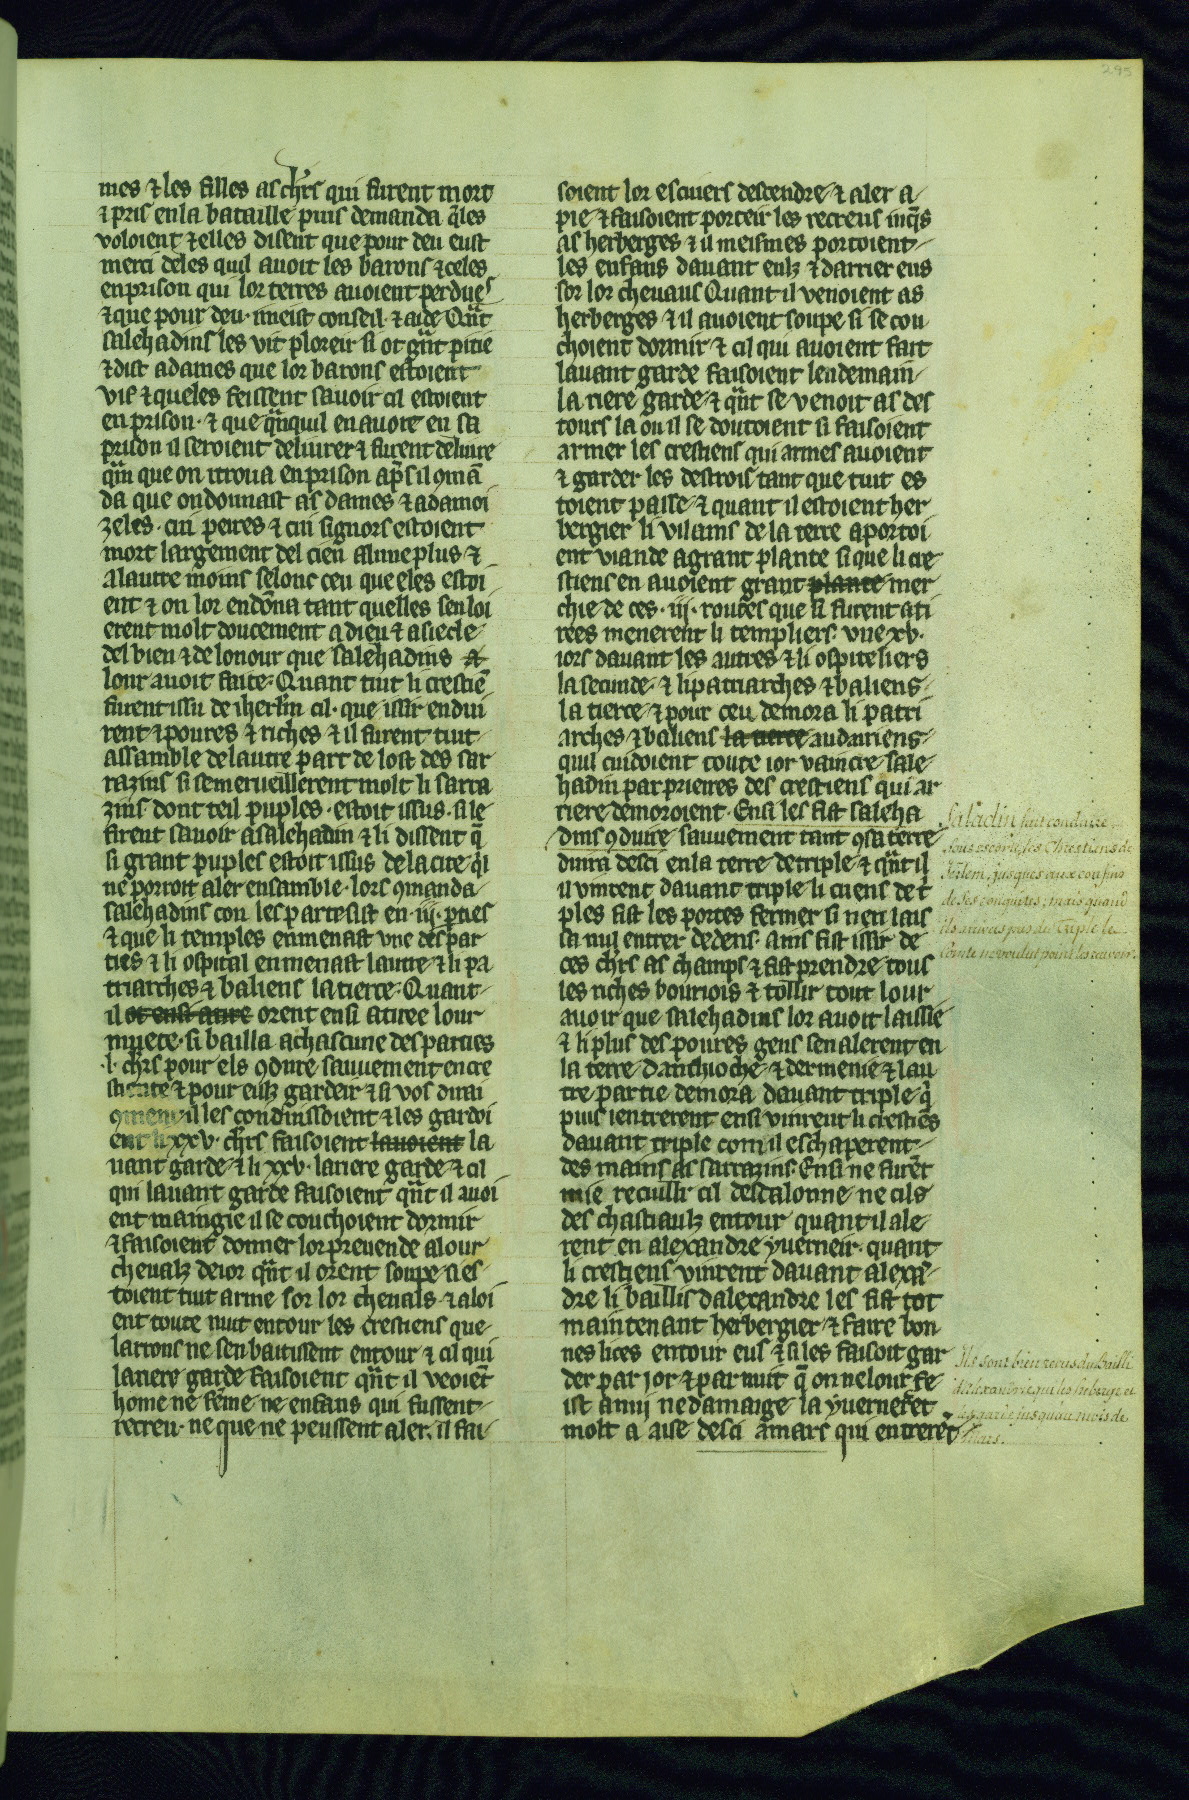 295
mes ⁊ les filles as chrs qui furent mort
⁊ pris en la bataille puis demanda q̃les
voloient ⁊ elles disent que pour deu eust
merci deles quil auoit les barons ⁊ celes
en prison qui lor terres auoient perdues
⁊ que pour deu imeist conseil ⁊ aide Qñt
salehadins les vit ploreir si ot gñt pitie
⁊ dist a dames que lor barons estoient
vis ⁊ queles feissent sauoir cil estoient
en prison · ⁊ que qñquil en auoit en sa
prison il seroient deliurer ⁊ furent deliure
qm̃ que on itroua en prison apˢ il ꝯmã
da que on donnast as dames ⁊ a damoi
zeles · cui peires ⁊ cui signors estoient
mort largement del cien a lune plus ⁊
a lautre moins selonc ceu que eles estoi
ent ⁊ on lor en dõna tant quelles sen loi
erent molt doucement a dieu ⁊ a siecle
del bien ⁊ de lonour que salehadins
lour auoit faite · Quant tuit li crestiẽ
furent issu de iherlm̃ cil · que issir en dui
rent ⁊ poures ⁊ riches ⁊ il furent tuit
assamble de lautre part de lost des sar
razins si se merueillerent molt li sarra
zins dont teil puples · estoit issus · si le
firent sauoir a salehadin ⁊ li dissent q̃
si grant puples estoit issus de la cite q̃l
ne porroit aler ensamble · lors ꝯmanda
salehadins con les partesist en · iij · pties
⁊ que li temples en menast vne des par
ties ⁊ li ospital en menast lautre ⁊ li pa
triarches ⁊ baliens la tierce · Quant
il ot ensi atire orent ensi atiree lour
muete · si bailla a chascune des parties
· l · chrs pour els ꝯdure sauuement en cre
stiente ⁊ pour eulz gardeir ⁊ si vos dirai
ꝯment il les conduissoient ⁊ les gardoi
ent li xxv · chrs faisoient lauoient la
uant garde ⁊ li xxv · lariere garde ⁊ cil
qui lauant garde faisoient qñt il auoi
ent maingie il se couchoient dormir
⁊ faisoient donner lor preuende a lour
cheualz de ior qñt il orent soupe si es
toient tuit arme sor lor cheuals ⁊ aloi
ent toute nuit entour les crestiens que
larrons ne sen batissent entour ⁊ cil qui
lariere garde faisoient qñt il veoiẽt
home ne fẽme ne enfans qui fussent
recreu · ne que ne peussent aler · il fai
soient lor escuiers descendre ⁊ aler a
pie ⁊ faisoient porteir les recreus iuq̃s
as herberges ⁊ il meismes portoient
les enfans dauant eulz ⁊ darrier eus
sor lor cheuaus Quant il venoient as
herberges ⁊ il auoient soupe si se cou
choient dormir ⁊ cil qui auoient fait
lauant garde faisoient lendemain
la riere garde ⁊ qñt se venoit as des
tours la ou il se doutoient si faisoient
armer les crestiens qui armes auoient
⁊ garder les destrois tant que tuit es
toient passe ⁊ quant il estoient her
bergier li vilains de la terre aportoi
ent viande a grant plante si que li cre
stiens en auoient grant plante mer
chie de ces · iij · routes que si furent ati
rees menerent li templiers vne xv ·
iors dauant les autres ⁊ li ospiteliers
la secunde · ⁊ li patriarches ⁊ baliens
la tierce ⁊ pour ceu demora li patri
arches ⁊ baliens la tierce au dairiens
quil cuidoient toute ior vaincre sale
hadin par prieires des crestiens qui ar
riere demoroient · Ensi les fist saleha
dins ꝯduire sauuement tant ꝯ sa terre
dura desci en la terre de triple ⁊ qñt il
il vinrent dauant triple li cuens de t̃
ples fist les portes fermer si nen lais
sa nul entrer dedens · ains fist issir de
ces chrs as champs ⁊ fist prendre tous
les riches bouriois ⁊ tollir tout lour
auoir que salehadins lor auoit laissie
⁊ li plus des poures gens sen alerent en
la terre danthioche ⁊ dermenie ⁊ lau
tre partie demora dauant triple q̃
puis i entrerent ensi vinrent li crestiẽs
dauant triple com il eschaperent
des mains as sarrazins · Ensi ne furẽt
mie recuilli cil descalonne ne cils
des chastiaulz entour quant il ale
rent en alexandre yuerneir · quant
li crestiens vinrent dauant alexã
dre li baillis dalexandre les fist tot
maintenant herbergier ⁊ faire bon
nes lices entour eus ⁊ si les faisoit gar
der par ior ⁊ par nuit q̃ on ne lour fe
ist anui ne damaige la yuernerẽt
molt a aise desci a mars qui entrerẽt
Saladin fait conduire
sous escorte les Chrestiens de
Jerlem, jusques aux confins
de ses conquetes; mais quand
ils arriverent pres du Triple le
Comte ne voulut point les recevoir.
Ils sont bien recus du Bailli
d'Alexandrie qui les heberge et
les garde jusqu'au mois de
mars.